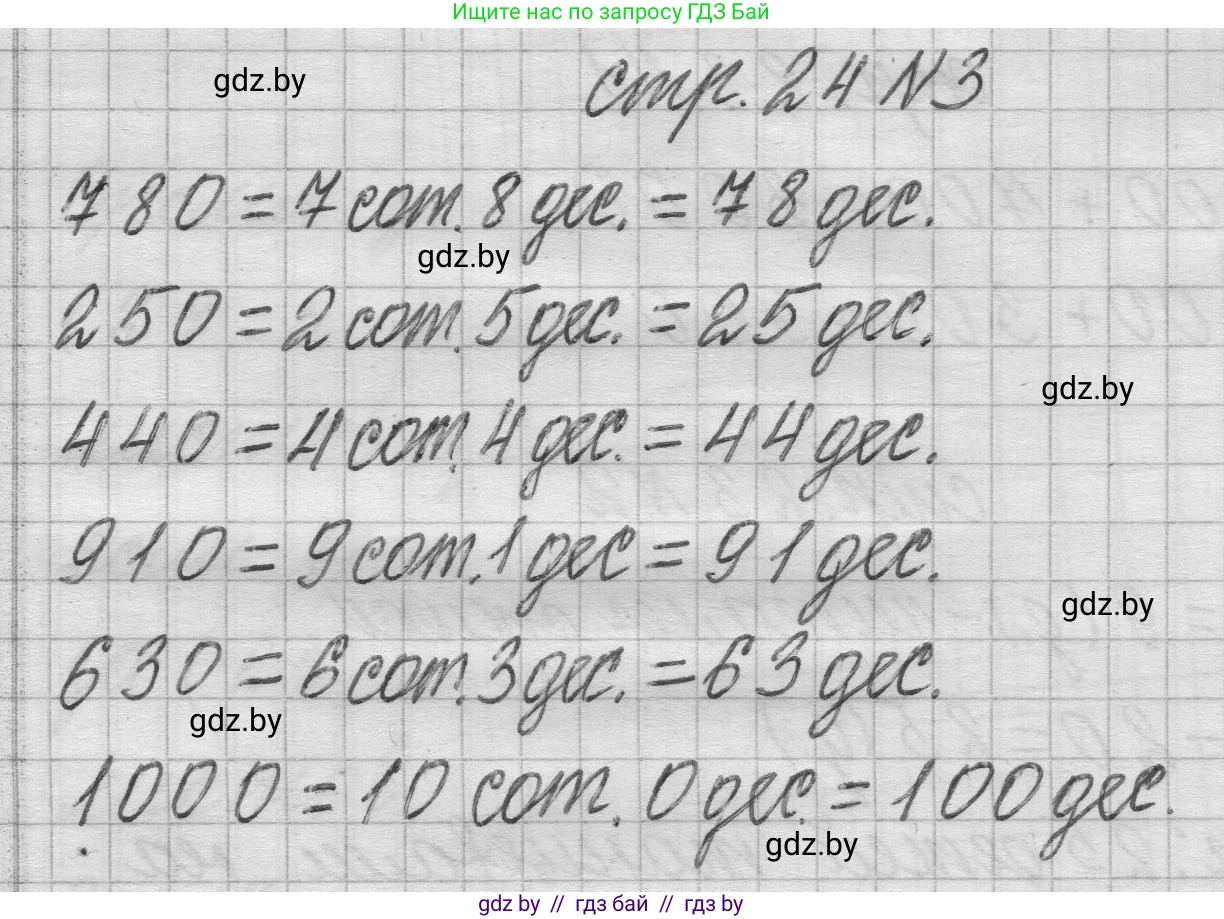 Ищите нас по запросу ГДЗ Бай
gdz.by
стр. 24 N3
780 = 7 сот. 8 дес. = 78 дес.
gdz.by
250 = 2 сот. 5 дес. = 25 дес.
gdz.by
440 = 4 сот. 4 дес. = 44 дес.
910 = 9 сот. 1 дес = 91 дес.
gdz.by
630 = 6 сот. 3 дес. = 63 дес.
gdz.by
1000 = 10 сот. 0 дес. = 100 дес.
gdz.by
gdz by // гдз бай // гдз by